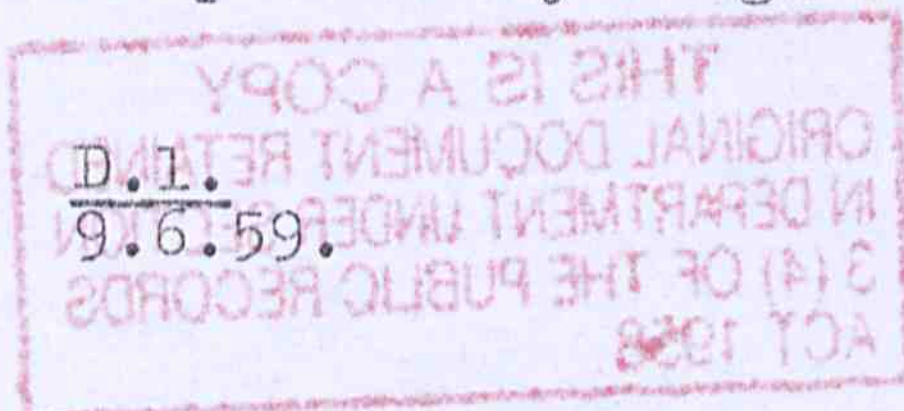 THIS IS A COPY
ORIGINAL DOCUMENT RETAINED
IN DEPARTMENT UNDER SECTION
3(4) OF THE PUBLIC RECORDS
ACT 1958
D.1.
9.6.59.